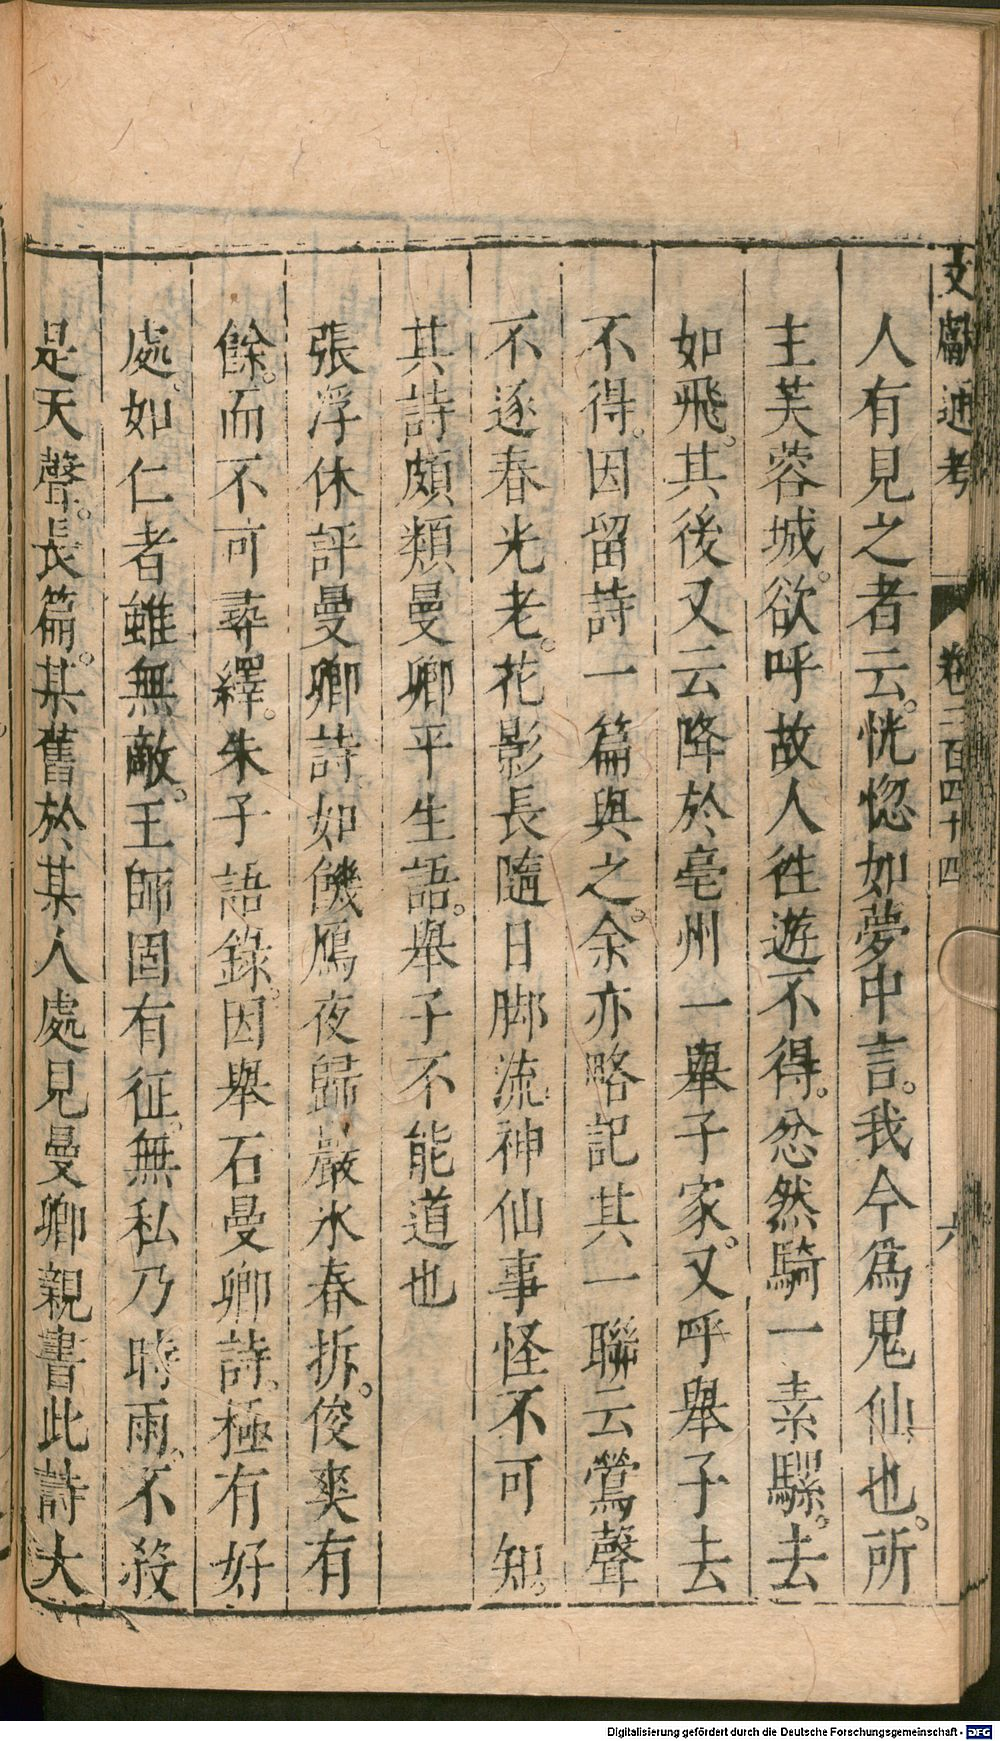 文獻通考 卷二百四十四 六
人有見之者云。恍惚如夢中言。我今爲鬼仙也。所
主芙蓉城。欲呼故人徃遊不得。忿然騎一素騾。去
如飛。其後又云降於亳州一舉子家。又呼舉子去
不得。因留詩一篇與之。余亦略記其一聯云鶯聲
不逐春光老。花影長隨日脚流神仙事怪不可知。
其詩頗類曼卿平生語。舉子不能道也
張浮休評曼卿詩如饑鴈夜歸巖氷春拆。俊爽有
餘。而不可尋繹。朱子語錄。因舉石曼卿詩。極有好
處。如仁者雖無敵。王師固有征。無私乃時雨。不殺
是天聲。長篇。某舊於某人處見曼卿親書此詩大
Digitalisierung gefördert durch die Deutsche Forschungsgemeinschaft - DFG